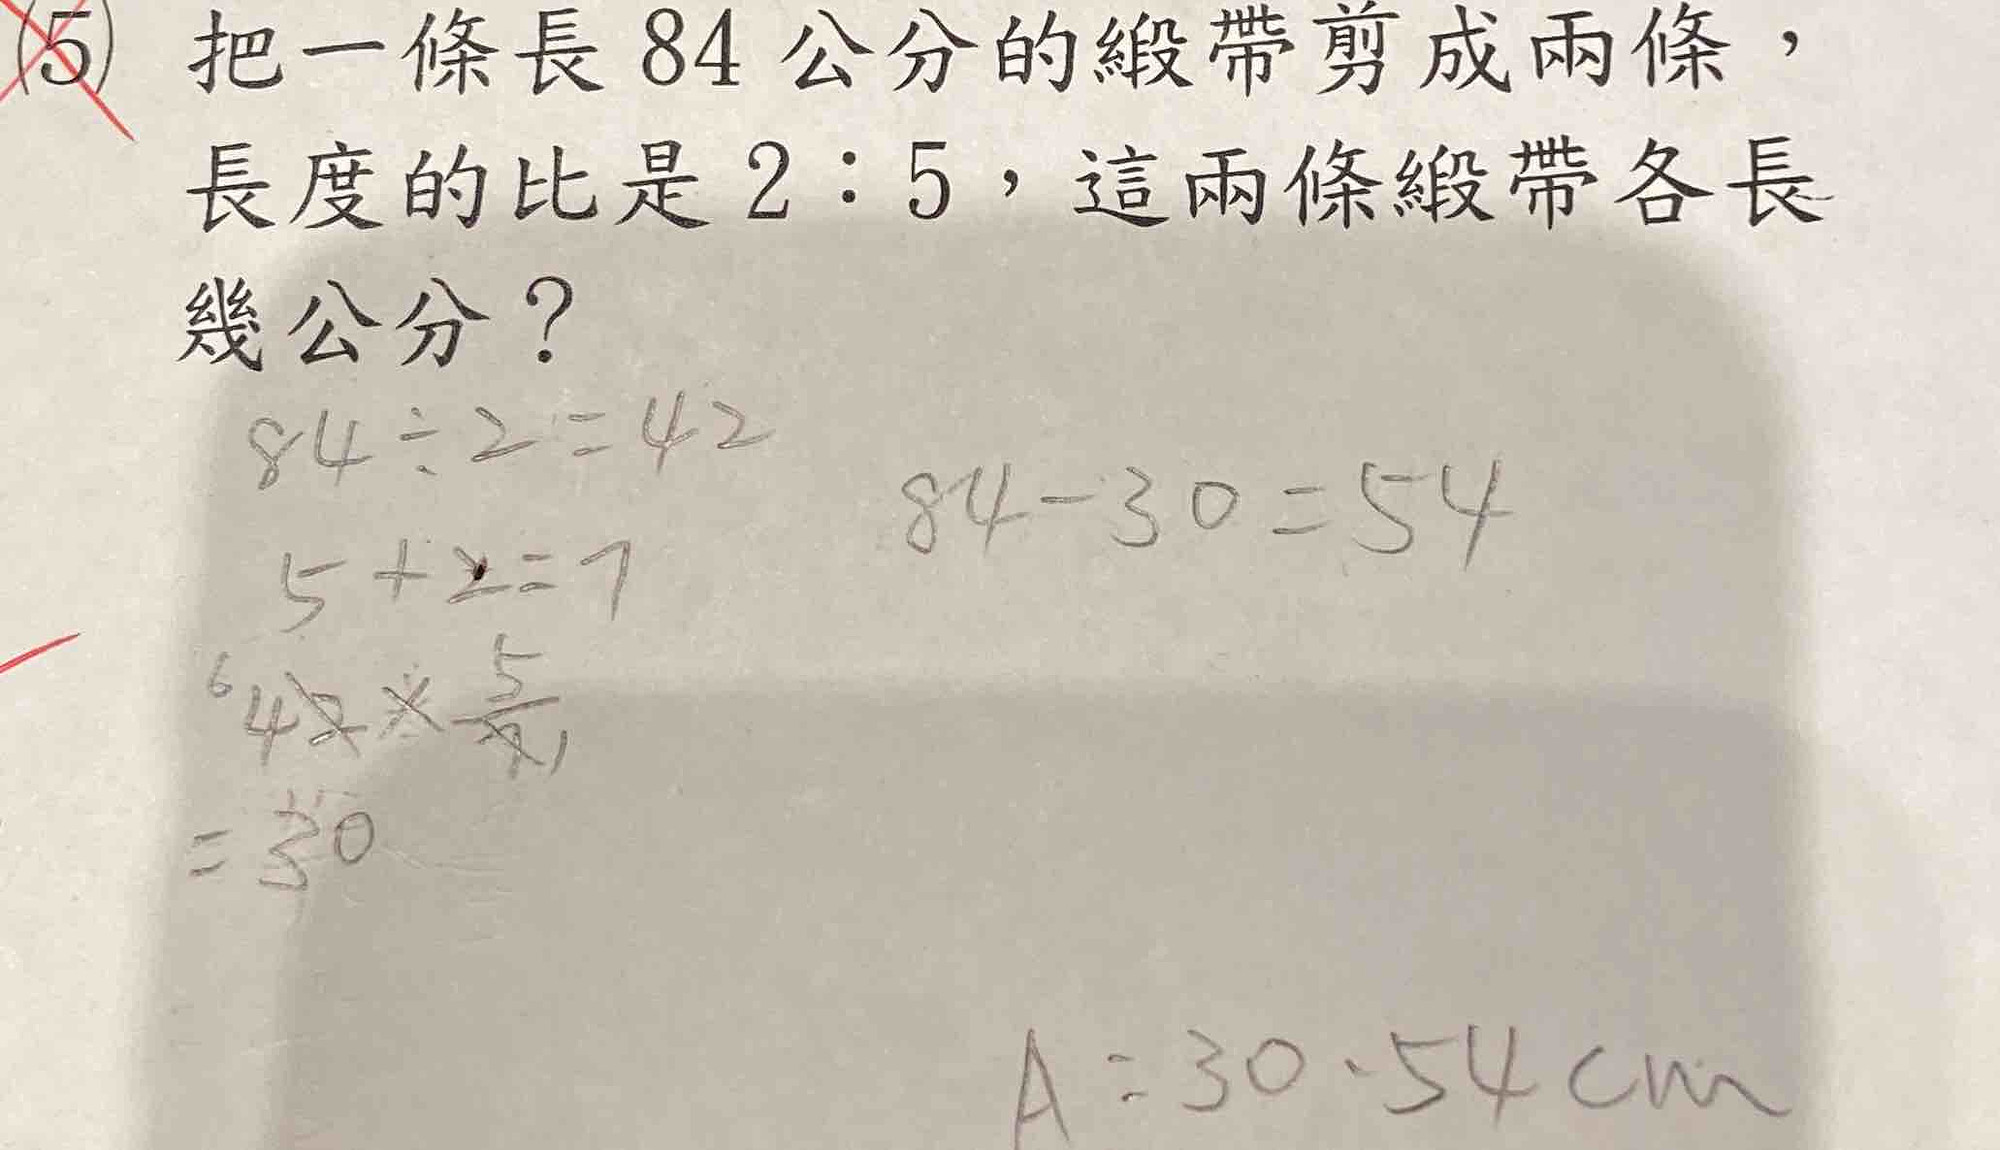 (5) 把一條長 84 公分的緞帶剪成兩條，
長度的比是 2：5，這兩條緞帶各長
幾公分？
84÷2=42
84-30=54
5+2=7
6 42×5/7 1
=30
A:30、54cm